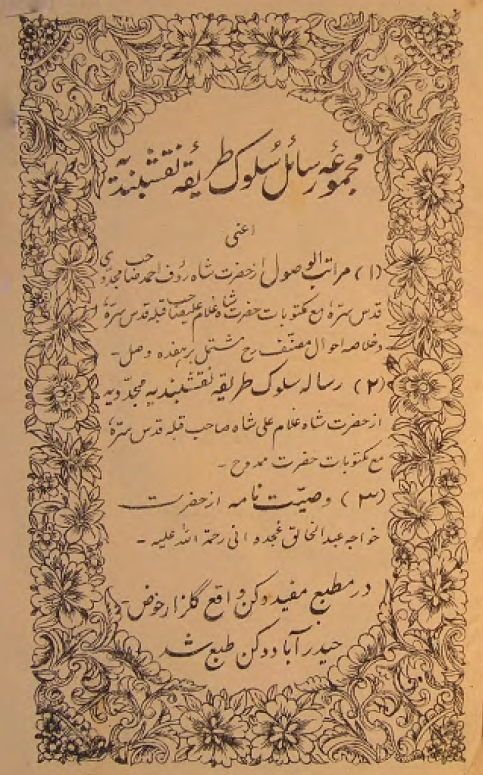 مجموعۂ رسائل سلوک طریقۂ نقشبندیہ
اعنی
(۱) مراتب الوصول از حضرت شاہ رؤف احمد صاحب مجددی
قدس سرہٗ مع مکتوبات حضرت شاہ غلام علیصاحب قبلہ قدس سرہٗ
و خلاصہ احوال مصنف رح مشتمل برہفدہ وصل ۔
(۲) رسالہ سلوک طریقہ نقشبندیہ مجددیہ
از حضرت شاہ غلام علی شاہ صاحب قبلہ قدس سرہٗ
مع مکتوبات حضرت ممدوح ۔
(۳) وصیت نامہ از حضرت
خواجہ عبد الخالق غجدوانی رحمۃ اللہ علیہ ۔
در مطبع مفید دکن واقع گلزار حوض ۔
حیدرآباد دکن طبع شد